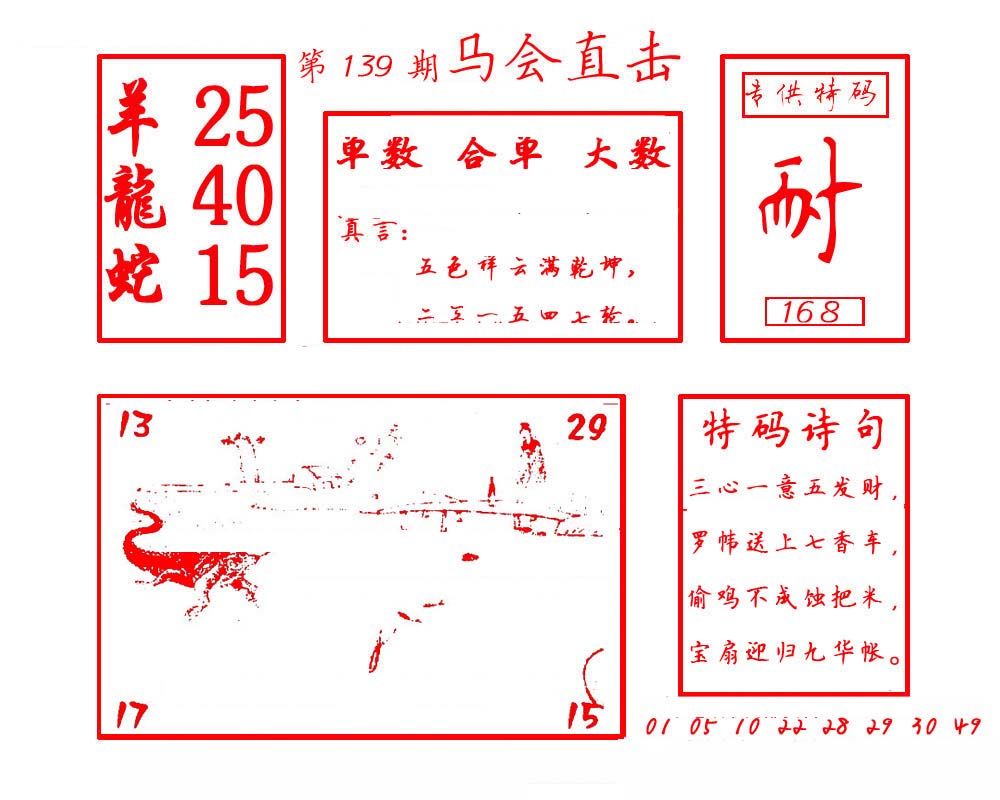 第 139 期 马会直击
羊 25
龍 40
蛇 15
单数 合单 大数
真言：
五色祥云满乾坤，
二三一五四七轮。
专供特码
耐
168
13
29
17
15
特码诗句
三心一意五发财，
罗帏送上七香车，
偷鸡不成蚀把米，
宝扇迎归九华帐。
01 05 10 22 28 29 30 49